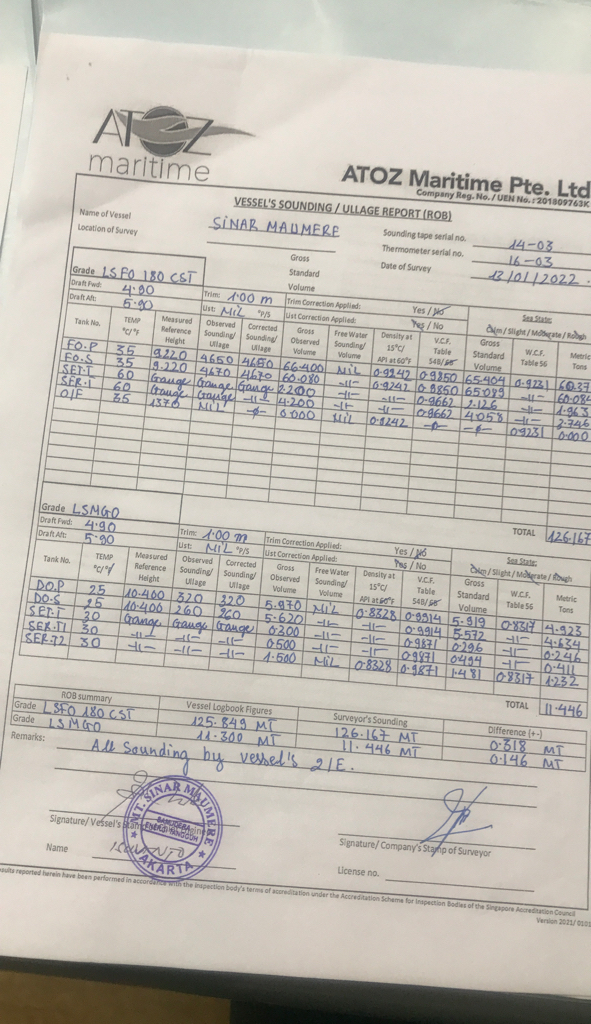 ATOZ
maritime
ATOZ Maritime Pte. Ltd
Company Reg. No. / UEN No. : 201809763K
VESSEL'S SOUNDING / ULLAGE REPORT (ROB)
Name of Vessel SINAR MAUMERE Sounding tape serial no. 14-03
Location of Survey Thermometer serial no. 16-03
Gross Standard Volume Date of Survey 13/01/2022.
Grade LSFO 180 CST
Draft Fwd: 4.90 Trim: 1.00 m Trim Correction Applied: Yes / No Sea State:
Draft Aft: 5.90 List: NIL °P/S List Correction Applied: Yes / No Calm / Slight / Moderate / Rough
Tank No. TEMP °C/°F Measured Reference Height Observed Sounding/ Ullage Corrected Sounding/ Ullage Gross Observed Volume Free Water Sounding/ Volume Density at 15°C/ API at 60°F V.C.F. Table 54B/ Gross Standard Volume W.C.F. Table 56 Metric Tons
FO.P 35 9.220 4650 4650 66.400 NIL 0.9242 0.9850 65.404 0.9231 60.37
FO.S 35 9.220 4670 4670 -11- 0.9242 0.9850 -11- 60.08
SET.T 60 Gauge Gauge Gauge -11- -11- 0.9662 2.126 -11- 1.963
SER.1 60 Gauge Gauge -11- 4.200 -11- -11- 0.9662 4.058 -11- 3.746
O/F 35 1370 NIL 0.000 NIL 0.9242 0.9231 0.000
TOTAL 126.167
Grade LSMGO
Draft Fwd: 4.90 Trim: 1.00 m Trim Correction Applied: Yes / No Sea State:
Draft Aft: 5.90 List: NIL °P/S List Correction Applied: Yes / No Calm / Slight / Moderate / Rough
Tank No. TEMP °C/°F Measured Reference Height Observed Sounding/ Ullage Corrected Sounding/ Ullage Gross Observed Volume Free Water Sounding/ Volume Density at 15°C/ API at 60°F V.C.F. Table 54B/ Gross Standard Volume W.C.F. Table 56 Metric Tons
DO.P 25 10.400 320 320 5.970 NIL 0.8328 0.9914 5.919 0.8317 4.923
DO.S 25 10.400 260 260 5.620 -11- -11- 0.9914 5.572 -11- 4.634
SET.T 30 Gauge Gauge Gauge 0.300 -11- -11- 0.9871 0.296 -11- 0.246
SER.T1 30 -11- -11- -11- 0.500 -11- -11- 0.9871 0.494 -11- 0.411
SER.T2 30 -11- -11- -11- 1.500 NIL 0.8328 0.9871 1.481 0.8317 1.232
TOTAL 11.446
ROB summary Vessel Logbook Figures Surveyor's Sounding Difference (+-)
Grade LSFO 180 CST 125.849 MT 126.167 MT 0.318 MT
Grade LSMGO 11.300 MT 11.446 MT 0.146 MT
Remarks: All Sounding by vessel's 2/E.
MT. SINAR MAUMERE
SAMUDERA
ENERGI TANGGUH
JAKARTA
Signature/ Vessel's Signature/ Company's Stamp of Surveyor
Name
License no.
sults reported herein have been performed in accordance with the inspection body's terms of accreditation under the Accreditation Scheme for Inspection Bodies of the Singapore Accreditation Council
Version 2021/ 0101